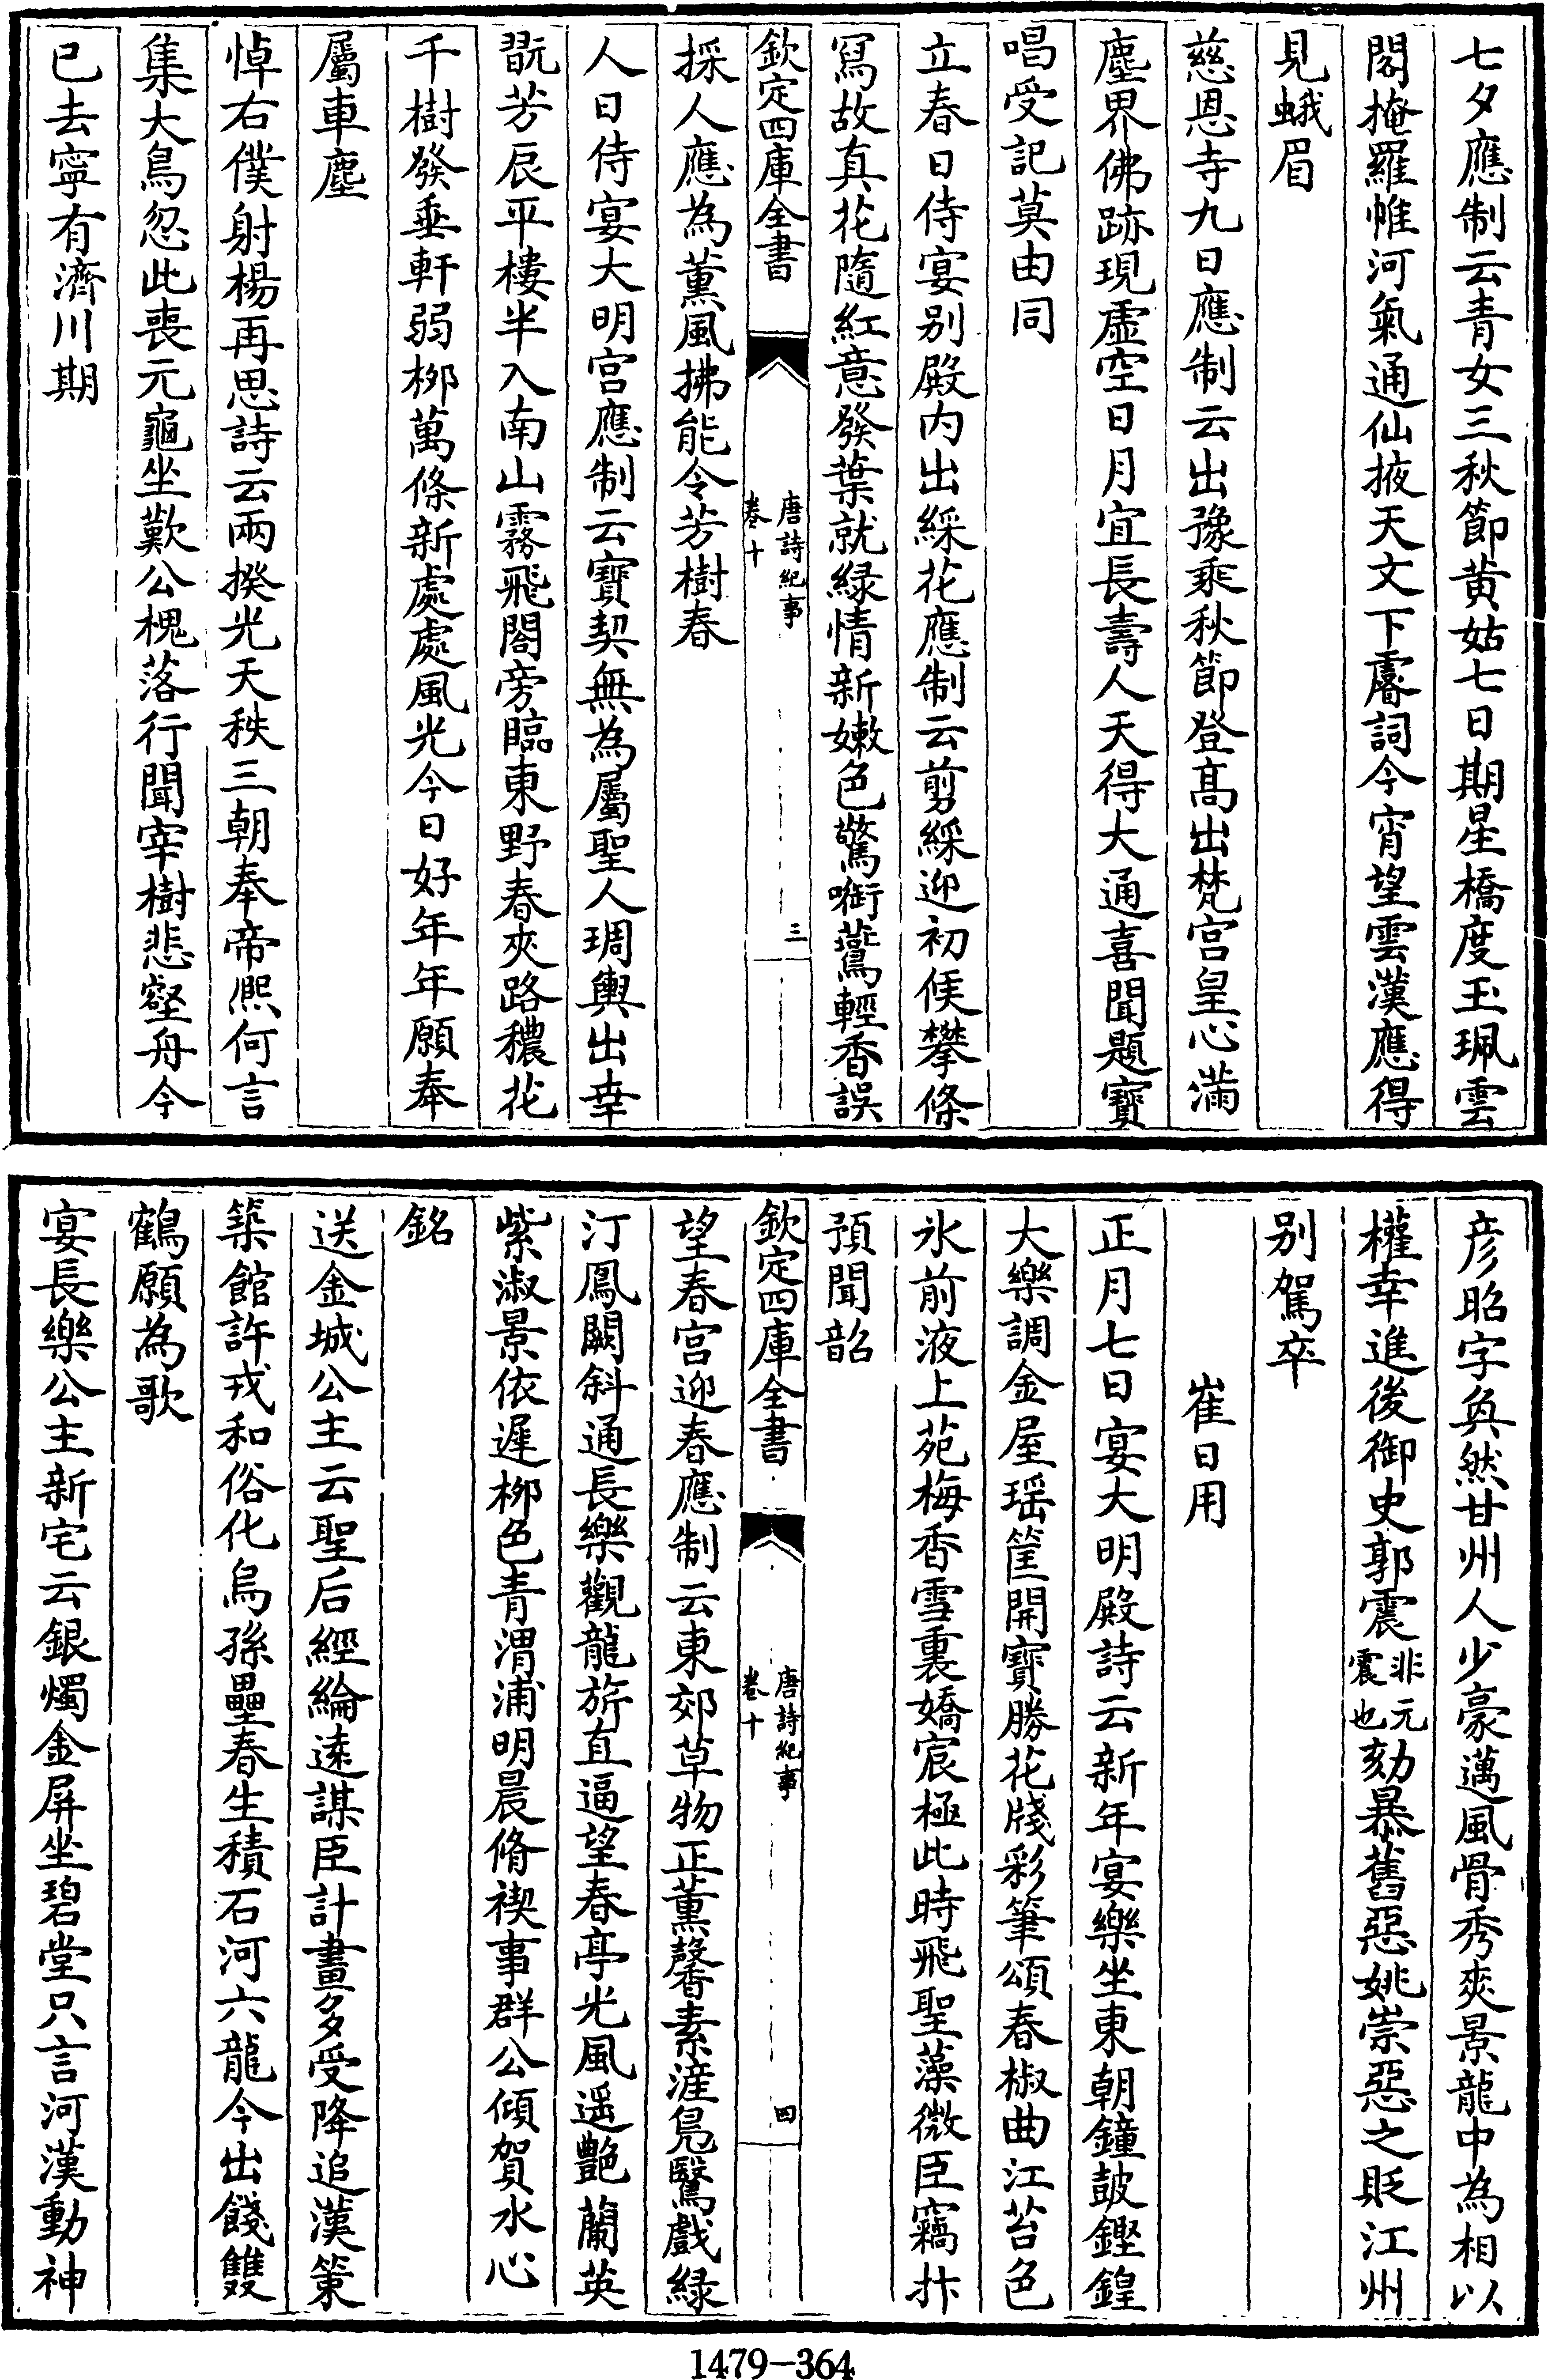 七夕應制云青女三秋節黄姑七日期星橋度玉珮雲
閣掩羅帷河氣通仙掖天文下睿詞今宵望雲漢應得
見蛾眉
慈恩寺九日應制云出豫乘秋節登髙出梵宫皇心滿
塵界佛跡現虛空日月宜長壽人天得大通喜聞題寶
唱受記莫由同
立春日侍宴别殿内出綵花應制云剪綵迎初候攀條
寫故真花隨紅意發葉就緑情新嫩色驚銜鷰輕香誤
欽定四庫全書
唐詩紀事
卷十
三
採人應為薰風拂能令芳樹春
人日侍宴大明宫應制云寶契無為屬聖人琱輿出幸
翫芳辰平樓半入南山霧飛閣旁臨東野春夾路穠花
千樹發垂軒弱栁萬條新處處風光今日好年年願奉
屬車塵
悼右僕射楊再思詩云兩揆光天秩三朝奉帝熙何言
集大鳥忽此喪元龜坐歎公槐落行聞宰樹悲壑舟今
已去寧有濟川期
彦昭字奐然甘州人少豪邁風骨秀爽景龍中為相以
權幸進後御史郭震非元
震也劾暴舊惡姚崇惡之貶江州
别駕卒
崔日用
正月七日宴大明殿詩云新年宴樂坐東朝鐘皷鏗鍠
大樂調金屋瑶筐開寶勝花牋彩筆頌春椒曲江苔色
氷前液上苑梅香雪裏嬌宸極此時飛聖藻微臣竊抃
預聞韶
欽定四庫全書
唐詩紀事
卷十
四
望春宫迎春應制云東郊草物正薰馨素滻鳬鷖戲緑
汀鳳闕斜通長樂觀龍旂直逼望春亭光風遥艶蘭英
紫淑景依遲栁色青渭浦明晨脩禊事群公傾賀水心
銘
送金城公主云聖后經綸逺謀臣計畫多受降追漢策
築館許戎和俗化烏孫壘春生積石河六龍今出餞雙
鶴願為歌
宴長樂公主新宅云銀燭金屏坐碧堂只言河漢動神
1479-364